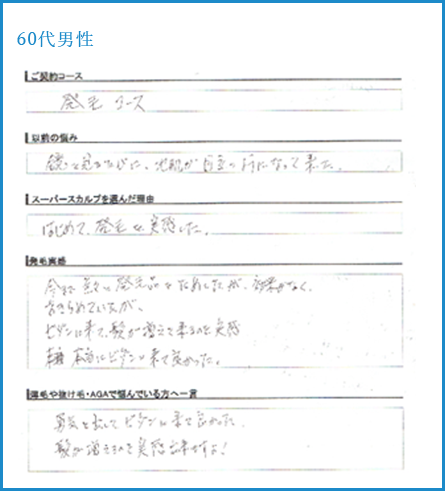 60代男性
ご契約コース
発毛 コース
以前の悩み
鏡を見るたびに、地肌が目立つ様になって来た。
スーパースカルプを選んだ理由
はじめて、発毛を実感した。
発毛実感
今まで色々な発毛品をためしたが、効果がなく、
あきらめていたが、
に来て、髪が増えて来るのを実感
本当に に来て良かった。
薄毛や抜け毛・AGAで悩んでいる方へ一言
勇気を出して に来て良かった。
髪が増えるのを実感出来ますよ!